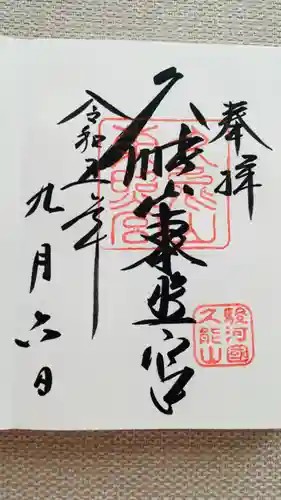 奉拝
久能山東照宮
令和五年
九月六日
駿河國
久能山